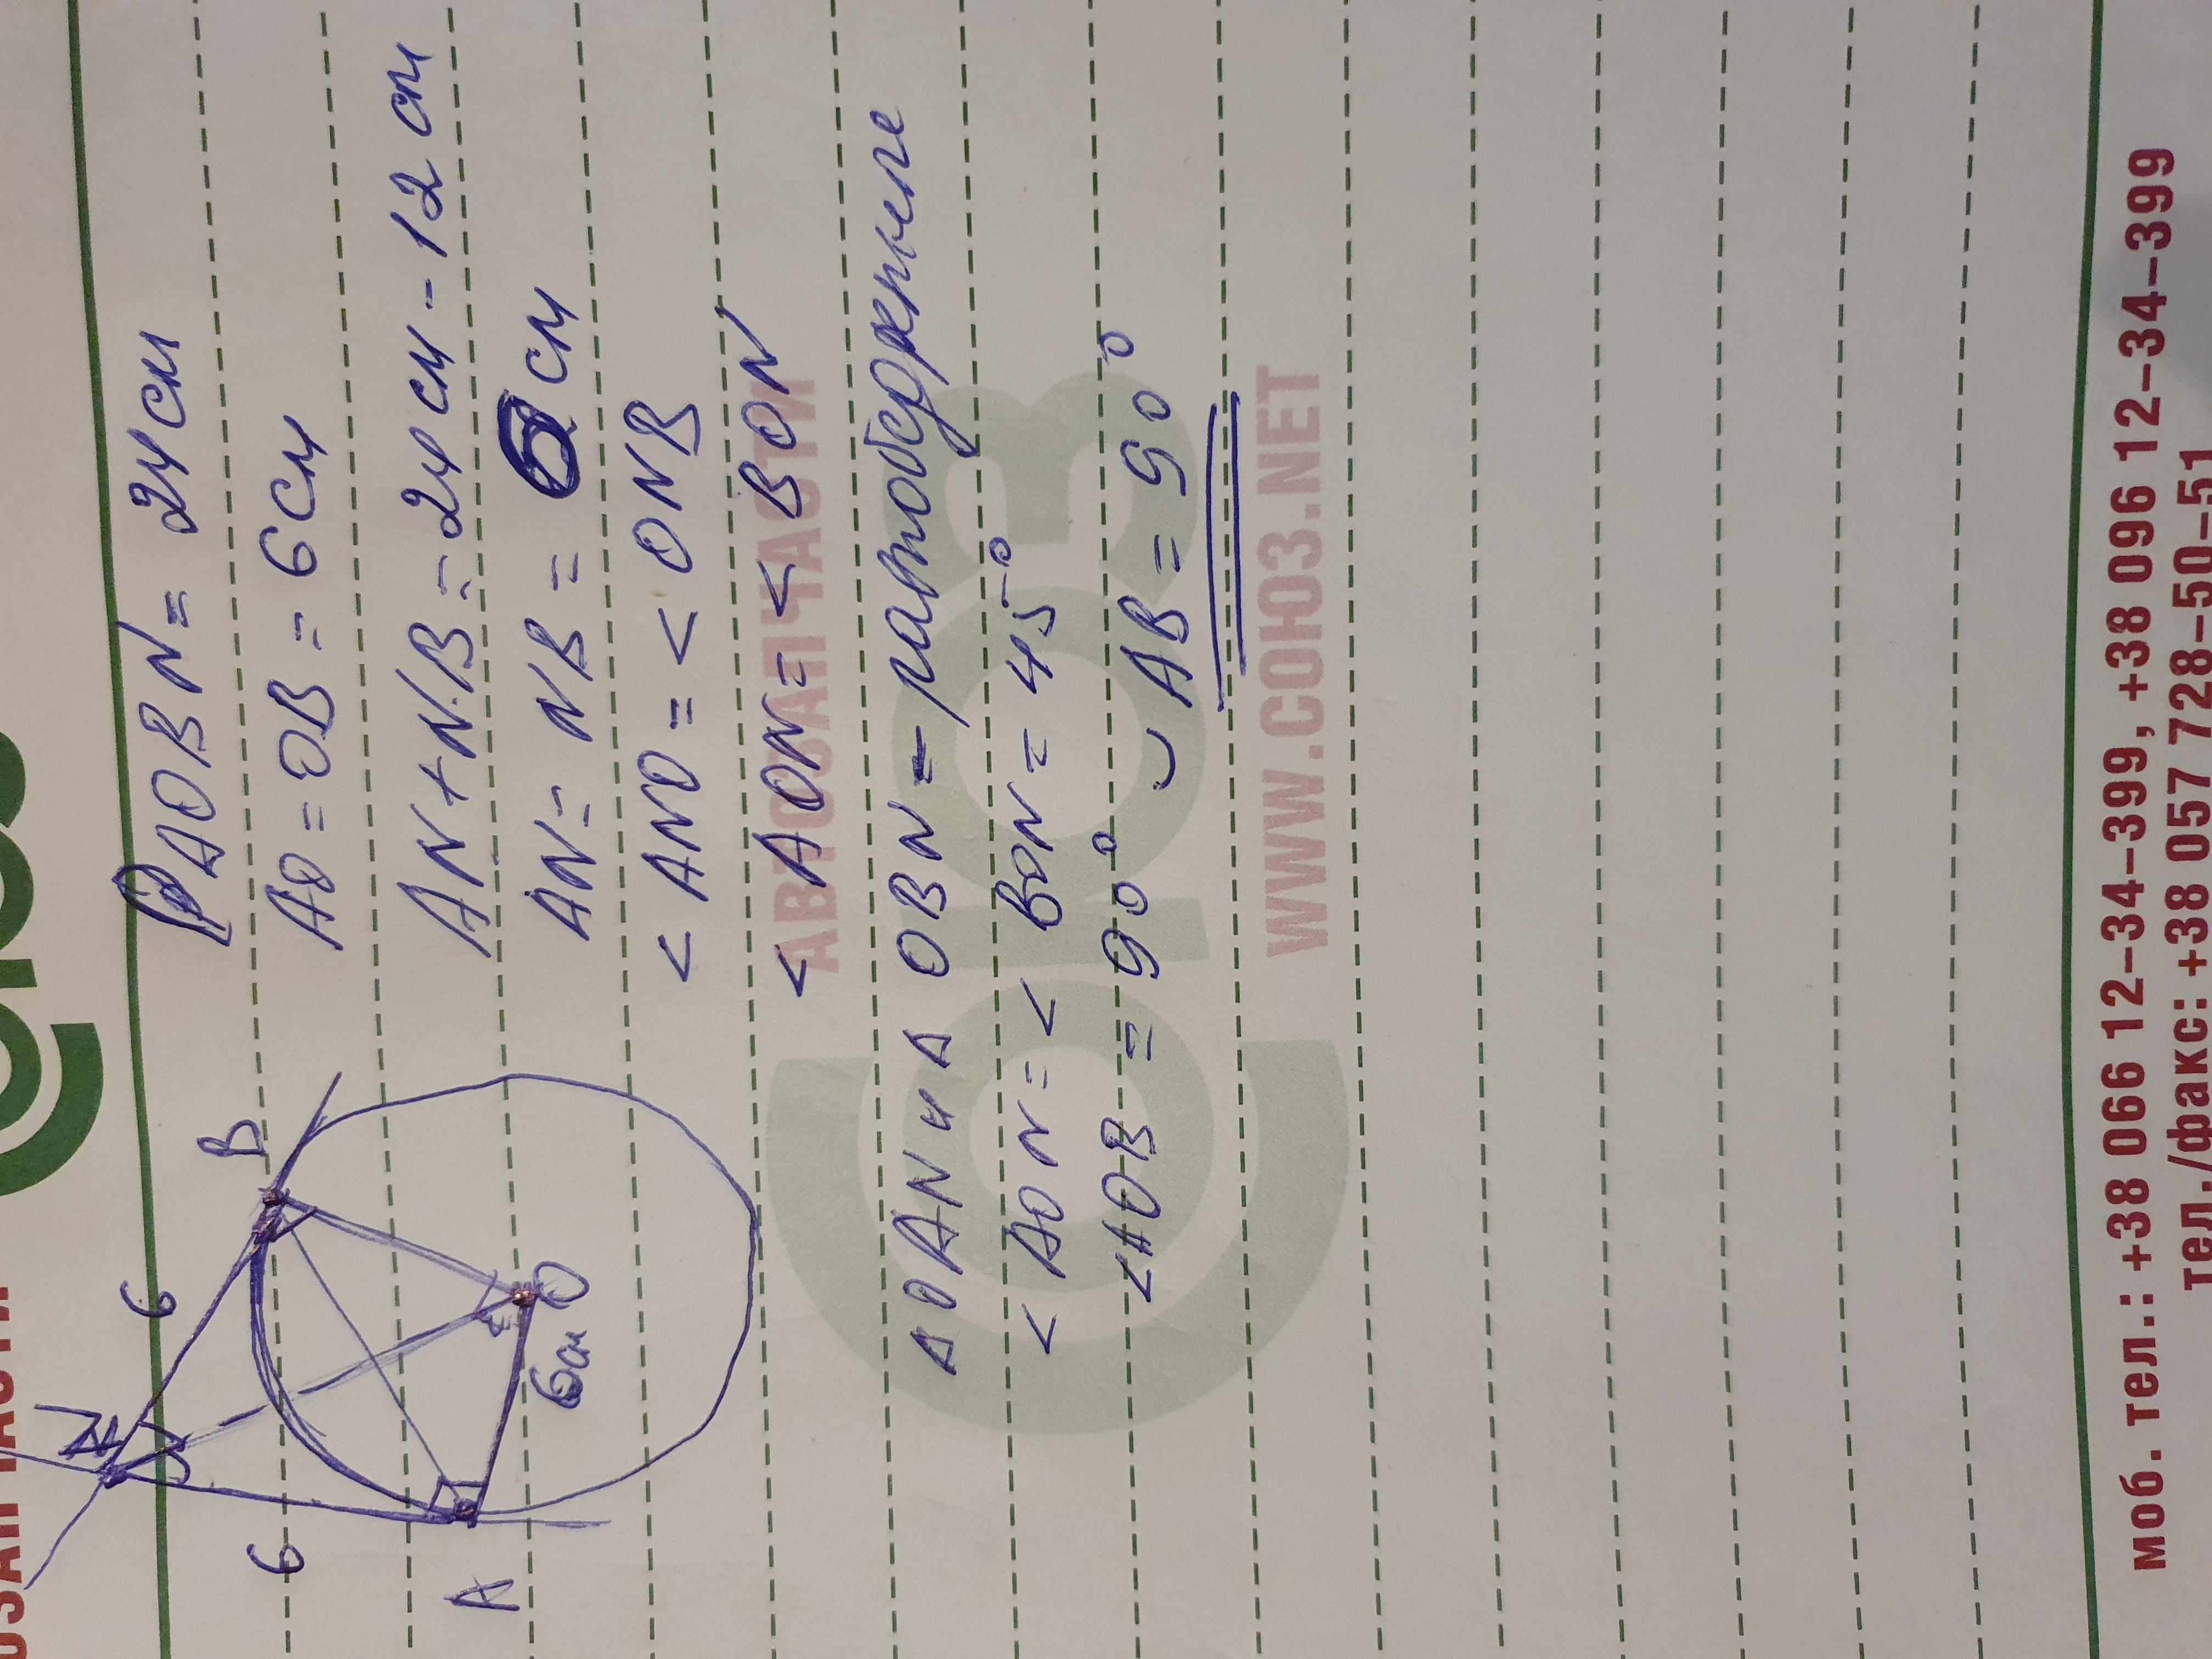 P AOBN = 24 см
AO = OB = 6 см
AN + NB = 24 см - 12 см
AN = NB = 6 см
< ANO = < ONB
< AON = < BON
Δ OAN и Δ OBN - равнобедренные
< AON = < BON = 45°
< AOB = 90° ◡ AB = 90°
N
B
A
O
6
6
6см
АВТОЗАПЧАСТИ
СОЮЗ
WWW.СОЮЗ.NET
моб. тел.: +38 066 12-34-399, +38 096 12-34-399
тел./факс: +38 057 728-50-51